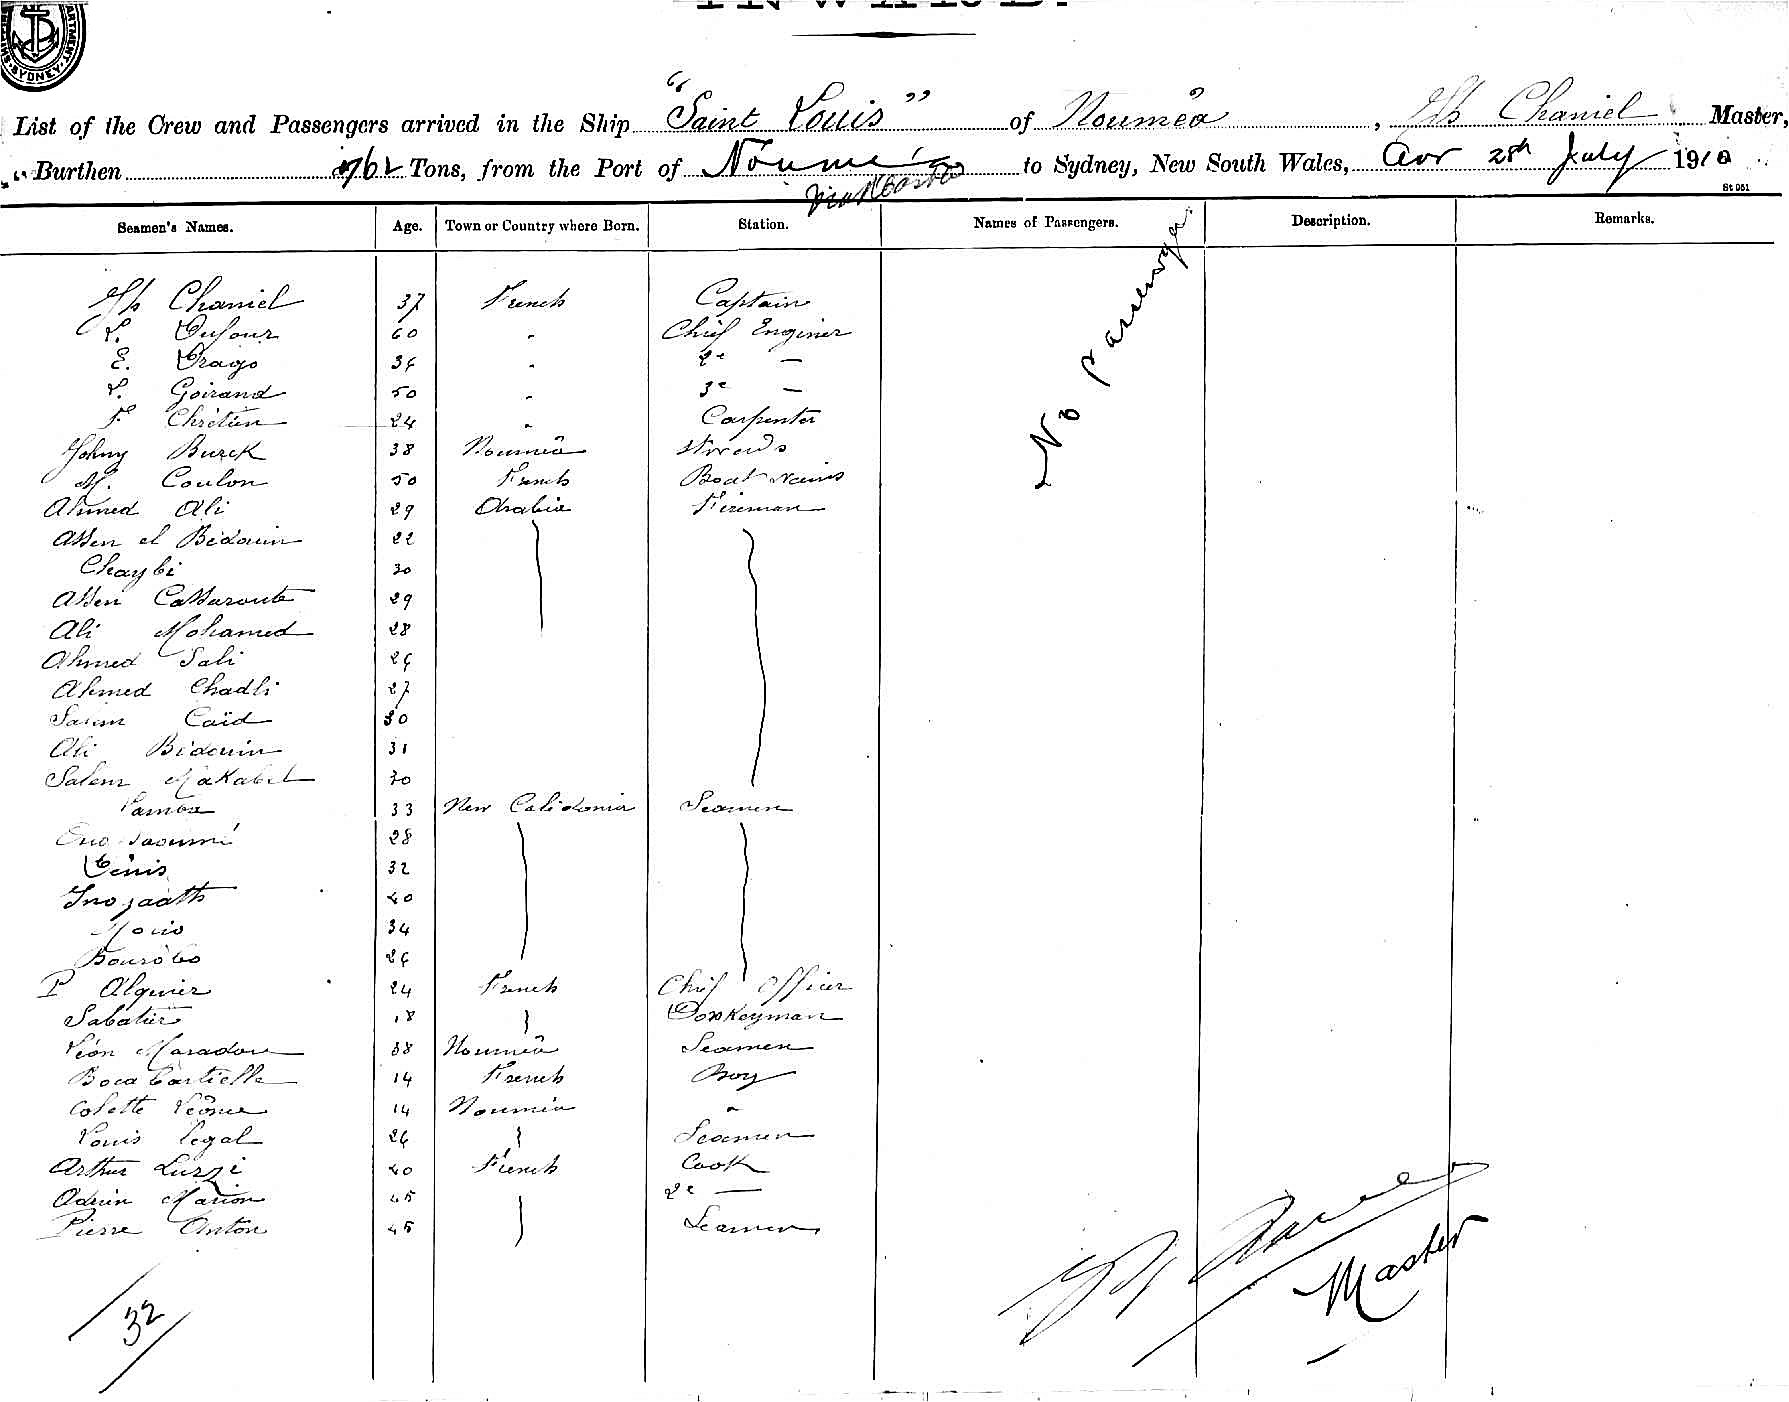 INWARD.
DEPARTMENT SYDNEY
List of the Crew and Passengers arrived in the Ship "Saint Louis" of Nouméa, Chaniel Master,
Burthen 762 Tons, from the Port of Nouméa to Sydney, New South Wales, arr 28th July 1910
via
St 051
Seamen's Names. Age. Town or Country where Born. Station. Names of Passengers. Description. Remarks.
Chaniel 37 French Captain
L. Dufour 60 " Chief Enginer
E. Drago 36 " 2e —
L. Goirand 50 " 3e —
F. Chrétien 24 " Carpenter
Johny Burck 38 Nouméa
M. Coulon 50 French
Ahmed Ali 29 Arabia Fireman
Assen el Bédouin 22
Chaybi 30
Assen 29
Ali Mohamed 28
Ahmed Sali 26
Ahmed Chadli 27
Salem Caïd 30
Ali Bédouin 31
Salem Makabel 30
33 New Calédonia Seamen
28
Denis 32
40
34
26
P Alquier 24 French Chief Officer
Sabatier 18 Donkeyman
Léon 38 Nouméa Seamen
14 French Boy
Colette Léonce 14 Nouméa "
Louis Legal 26 Seamen
Arthur Luzzi 40 French Cook
Adrien Marion 45 2e —
Pierre Anton 45 Seamen
No Passenger
32
Master